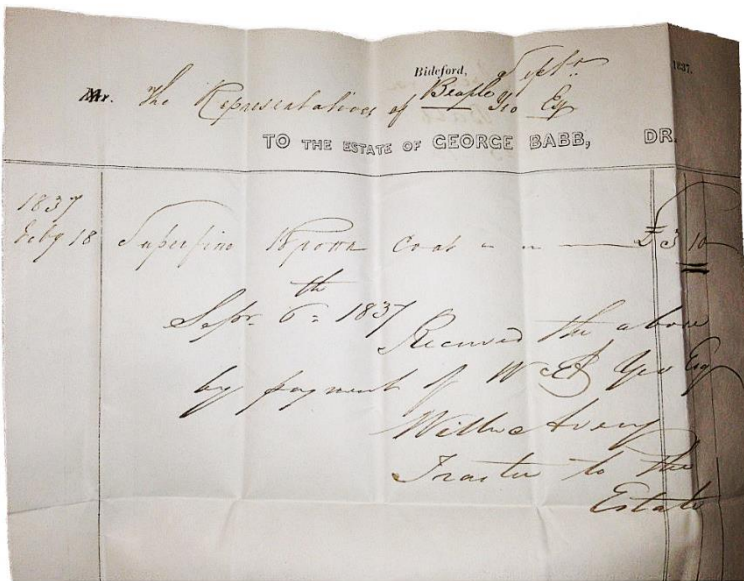 Bideford, Septr. 1837.
Mr. The Representatives of Beaple Yeo Esq
TO THE ESTATE OF GEORGE BABB, DR.
1837
Feby 18 Superfine Brown Coat £3 10
Sepr. 6th 1837
Received the above
by payment of W Yeo Esq
Willm Avery
Trustee to the
Estate